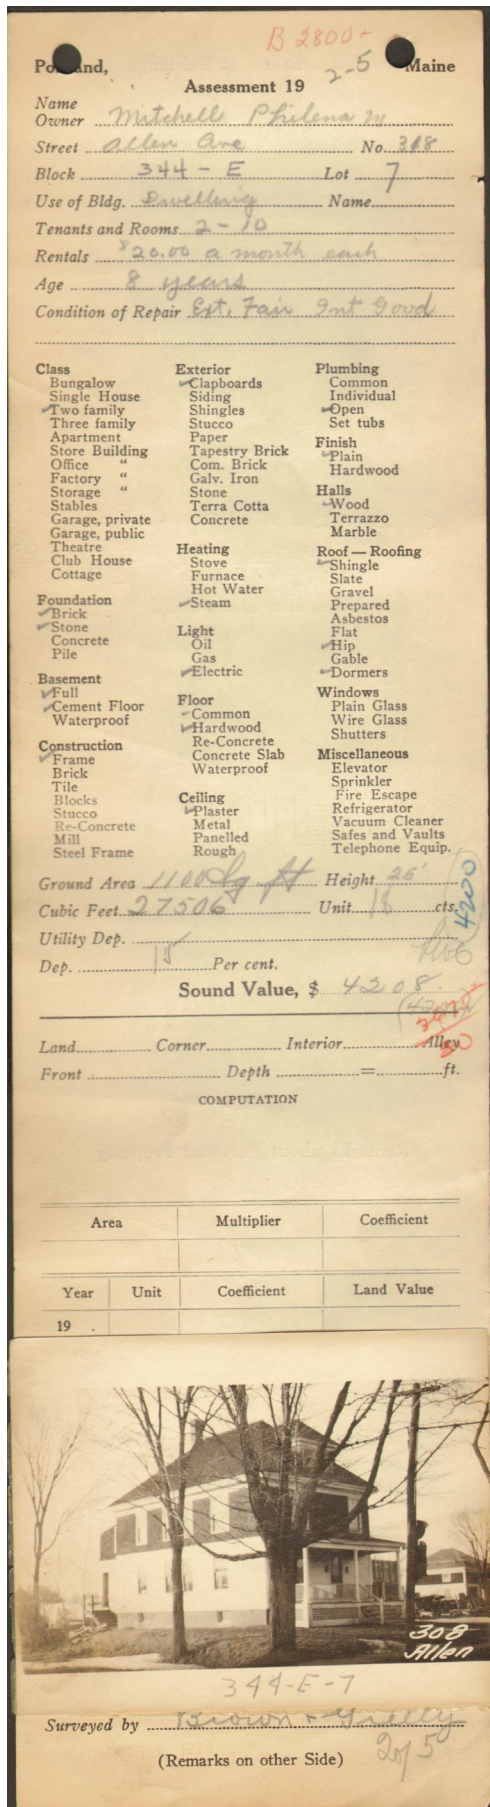 B 2800-
2-5
Portland, Maine
Assessment 19
Name
Owner Mitchell Philena M
Street Allen Ave No. 318
Block 344 - E Lot 7
Use of Bldg. Dwelling Name
Tenants and Rooms 2 - 10
Rentals $20.00 a month each
Age 8 years
Condition of Repair Ext. Fair Int Good
Class
Bungalow
Single House
Two family
Three family
Apartment
Store Building
Office "
Factory "
Storage "
Stables
Garage, private
Garage, public
Theatre
Club House
Cottage
Foundation
Brick
Stone
Concrete
Pile
Basement
Full
Cement Floor
Waterproof
Construction
Frame
Brick
Tile
Blocks
Stucco
Re-Concrete
Mill
Steel Frame
Exterior
Clapboards
Siding
Shingles
Stucco
Paper
Tapestry Brick
Com. Brick
Galv. Iron
Stone
Terra Cotta
Concrete
Heating
Stove
Furnace
Hot Water
Steam
Light
Oil
Gas
Electric
Floor
Common
Hardwood
Re-Concrete
Concrete Slab
Waterproof
Ceiling
Plaster
Metal
Panelled
Rough
Plumbing
Common
Individual
Open
Set tubs
Finish
Plain
Hardwood
Halls
Wood
Terrazzo
Marble
Roof — Roofing
Shingle
Slate
Gravel
Prepared
Asbestos
Flat
Hip
Gable
Dormers
Windows
Plain Glass
Wire Glass
Shutters
Miscellaneous
Elevator
Sprinkler
Fire Escape
Refrigerator
Vacuum Cleaner
Safes and Vaults
Telephone Equip.
Ground Area 1100 Sq ft Height 25'
Cubic Feet 27506 Unit 18 cts.
4200
Utility Dep.
Dep. 15 Per cent.
Sound Value, $ 4208.
Land Corner Interior Alley
Front Depth = ft.
COMPUTATION
Area Multiplier Coefficient
Year Unit Coefficient Land Value
19 .
308
Allen
344-E-7
Surveyed by Brown +
(Remarks on other Side)
2 of 5